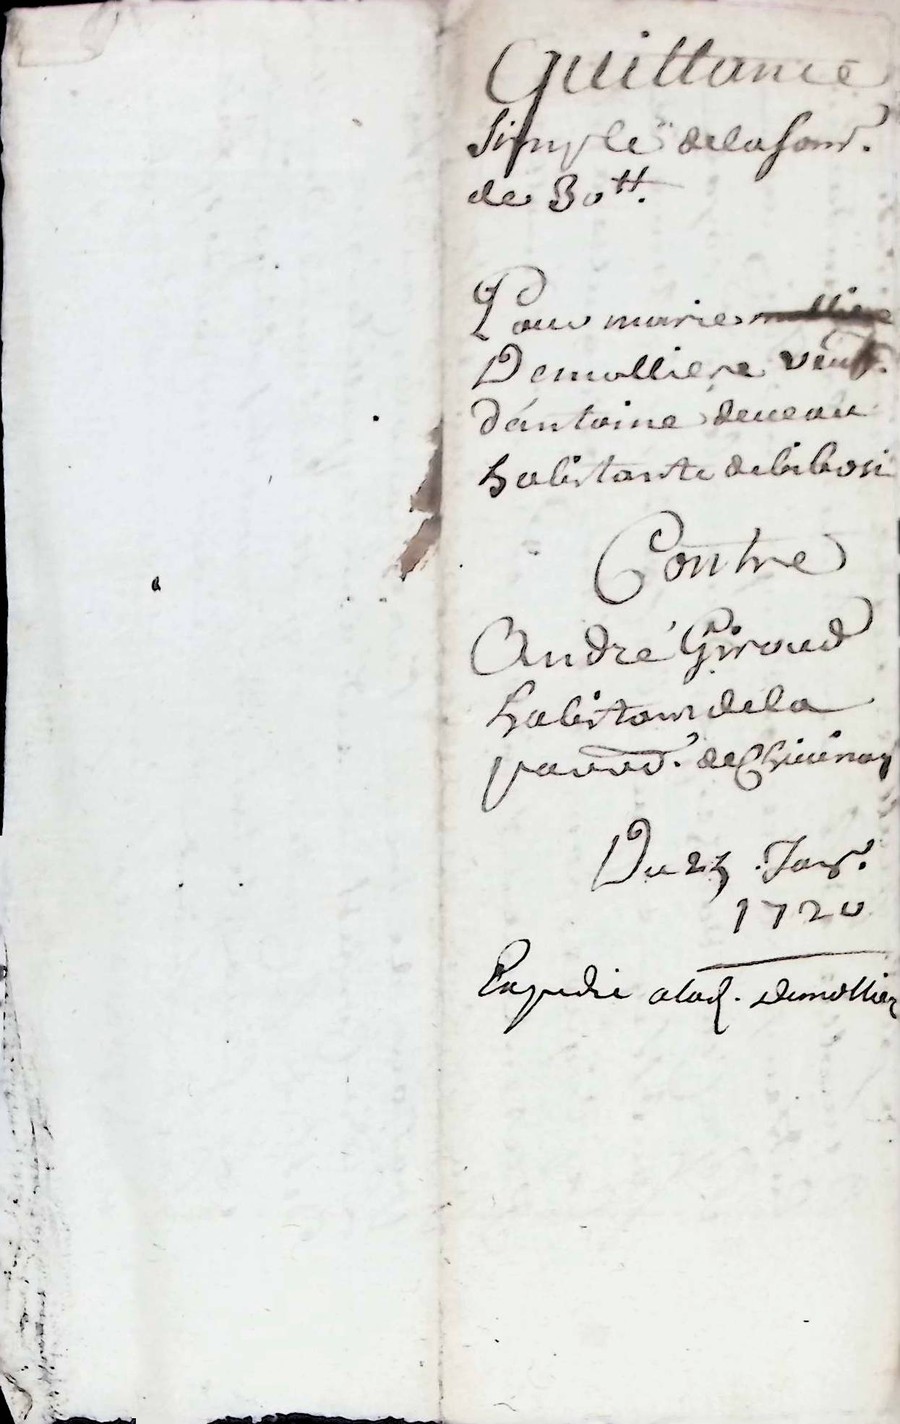 Quittance
Simple de la som.
de 30 tt.
Pour marie molliere
Demolliere veufv.
d'antoine deveau
habitante de
Contre
André Giroud
habitant de la
parois.
Du 25 Janv.
1720
Expedie a lad. demollier